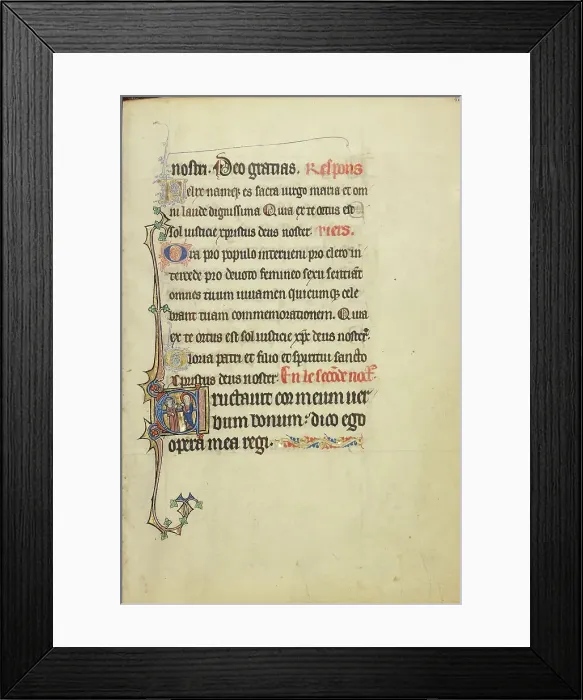 nostri. Deo gratias. Respons
Felix namq; es sacra uirgo maria et om
ni laude dignissima Quia ex te ortus est
Sol iusticie xpistus deus noster vers.
Ora pro populo interueni pro clero in
tercede pro deuoto femineo sexu sentiant
omnes tuum iuuamen quicumq; cele
brant tuam commemorationem. Quia
ex te ortus est sol iusticie xpc deus noster.
Gloria patri et filio et spiritui sancto
Xpistus deus noster En le secōde noct.
Eructauit cor meum uer
bum bonum: dico ego
opera mea regi.